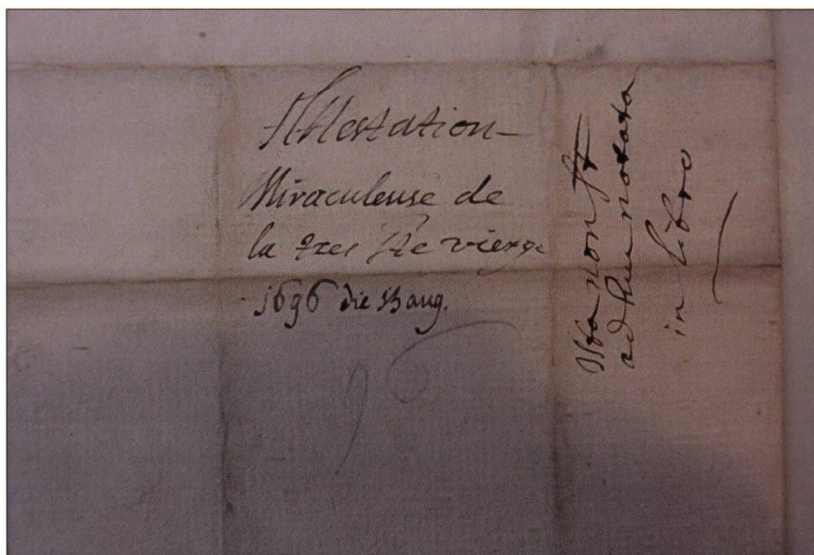 Attestation
Miraculeuse de
la tres Ste vierge
1696 die 13 aug.
Ista non st
adhuc notata
in libro